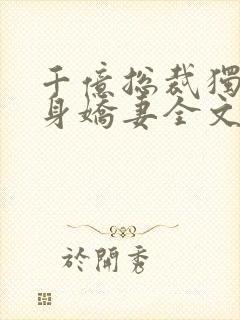 千億總裁獨
身嬌妻全文
於開秀